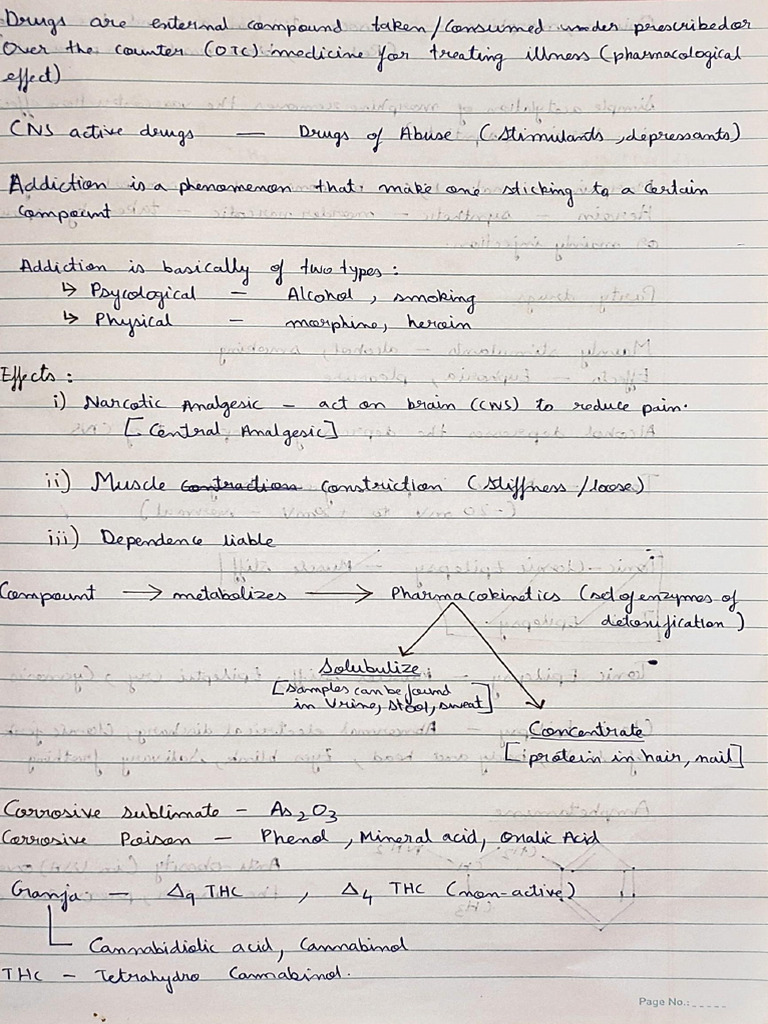 Drugs are external compound taken/consumed under prescribed or
Over the counter (OTC) medicine for treating illness (pharmacological
effect)
CNS active drugs — Drugs of Abuse (stimulants, depressants)
Addiction is a phenomenon that make one sticking to a certain
compount
Addiction is basically of two types :
↳ Psycological — Alcohol, smoking
↳ Physical — morphine, heroin
Effects :
i) Narcotic Analgesic — act on brain (CNS) to reduce pain.
[Central Analgesic]
ii) Muscle contraction constriction (stiffness/loose)
iii) Dependence liable
Compount → metabolizes → Pharmacokinetics (set of enzymes of
detoxification)
Solubulize
[samples can be found
in Urine, stool, sweat]
Concentrate
[protein in hair, nail]
Corrosive sublimate — As₂O₃
Corrosive Poison — Phenol, Mineral acid, Oxalic Acid
Granja — Δ9 THC , Δ4 THC (non-active)
Cannabidiolic acid, Cannabinol
THC — Tetrahydro Cannabinol.
Page No.: